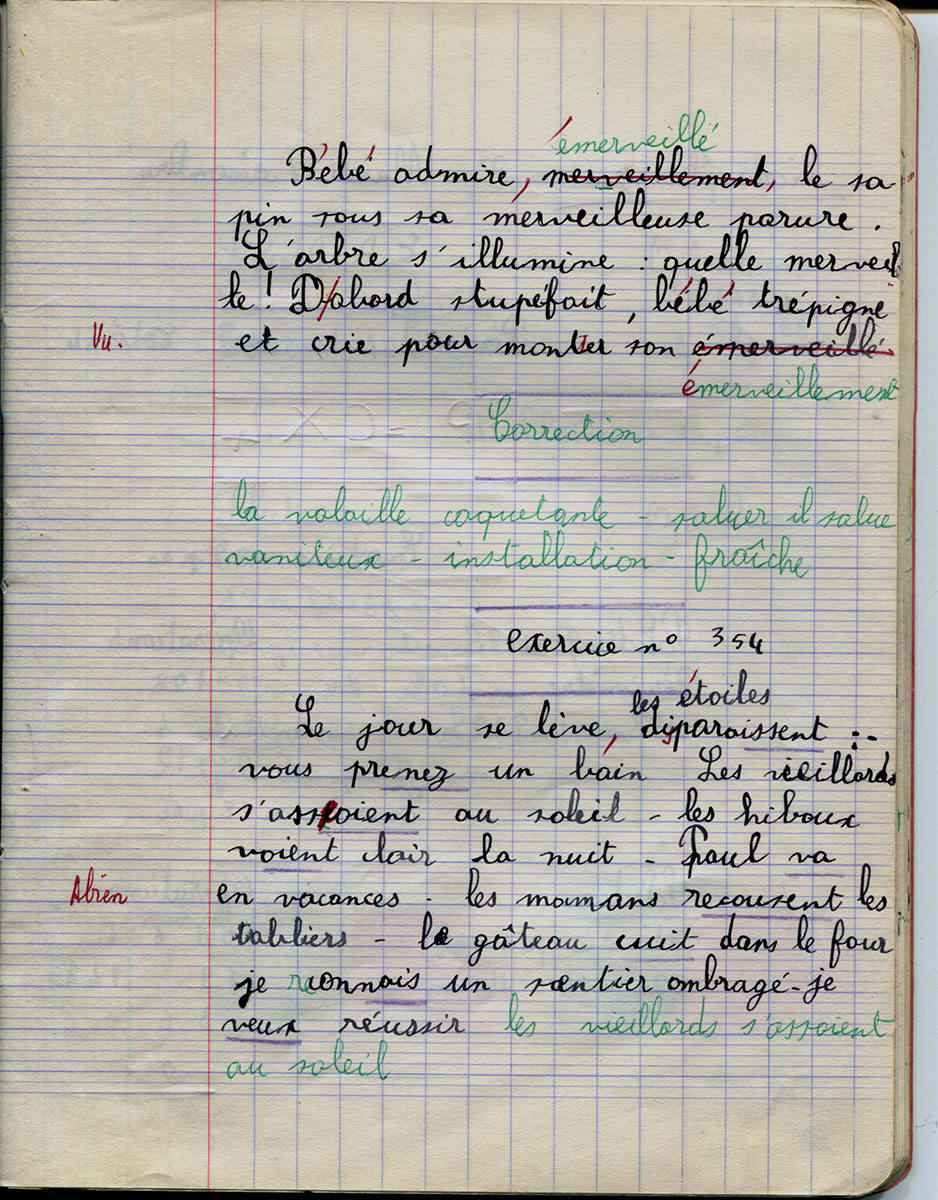 émerveillé
Bébé admire, merveillement, le sa
pin sous sa merveilleuse parure.
L'arbre s'illumine : quelle merveil
le ! D'abord stupéfait, bébé trépigne
Vu. et crie pour monter son émerveillé.
émerveillement
Correction
la volaille caquetante - saluer il salue
vaniteux - installation - fraîche
exercice n° 354
les étoiles
Le jour se lève, disparaissent :-
vous prenez un bain Les vieillards
s'assoient au soleil - les hiboux
voient clair la nuit - Paul va
Abien en vacances - les mamans recousent les
tabliers - le gâteau cuit dans le four
je connais un sentier ombragé - je
veux réussir les vieillards s'assoient
au soleil